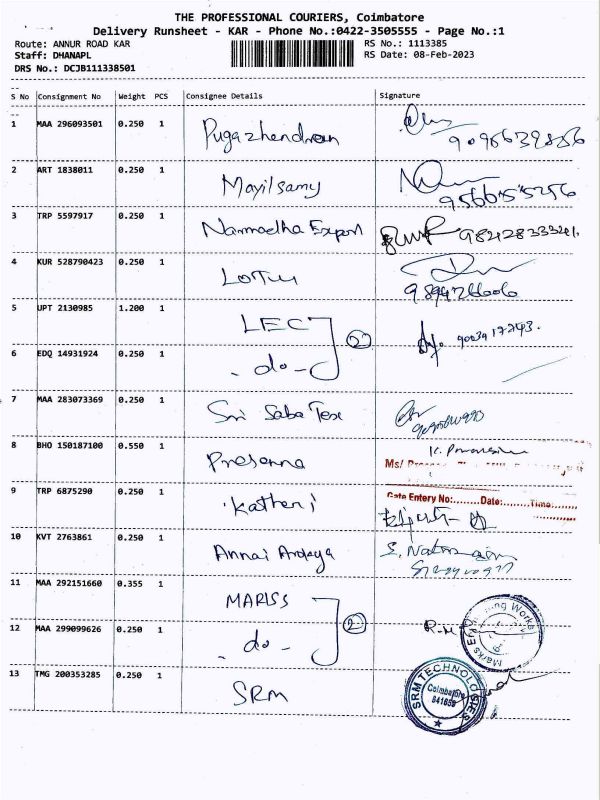 THE PROFESSIONAL COURIERS, Coimbatore
Delivery Runsheet - KAR - Phone No.:0422-3505555 - Page No.:1
Route: ANNUR ROAD KAR RS No.: 1113385
Staff: DHANAPL RS Date: 08-Feb-2023
DRS No.: DCJB111338501
S No Consignment No Weight PCS Consignee Details Signature
1 MAA 296093501 0.250 1 Pugazhendran
2 ART 1838011 0.250 1 Mayilsamy
3 TRP 5597917 0.250 1 Narmadha Export
4 KUR 528790423 0.250 1 Lotus
9894266606
5 UPT 2130985 1.200 1 LEC 2
9003917243.
6 EDQ 14931924 0.250 1 - do -
7 MAA 283073369 0.250 1 Sri Saba Tex
8 BHO 150187100 0.550 1 Presanna
Ms/
9 TRP 6875290 0.250 1 Katheri
Gate Entry No:........Date:........Time:........
10 KVT 2763861 0.250 1 Annai
11 MAA 292151660 0.355 1 MARISS 2
12 MAA 299099626 0.250 1 - do -
R.M
Works
13 TMG 200353285 0.250 1 SRM
SRM TECHNOLOGIES
Coimbatore
641659